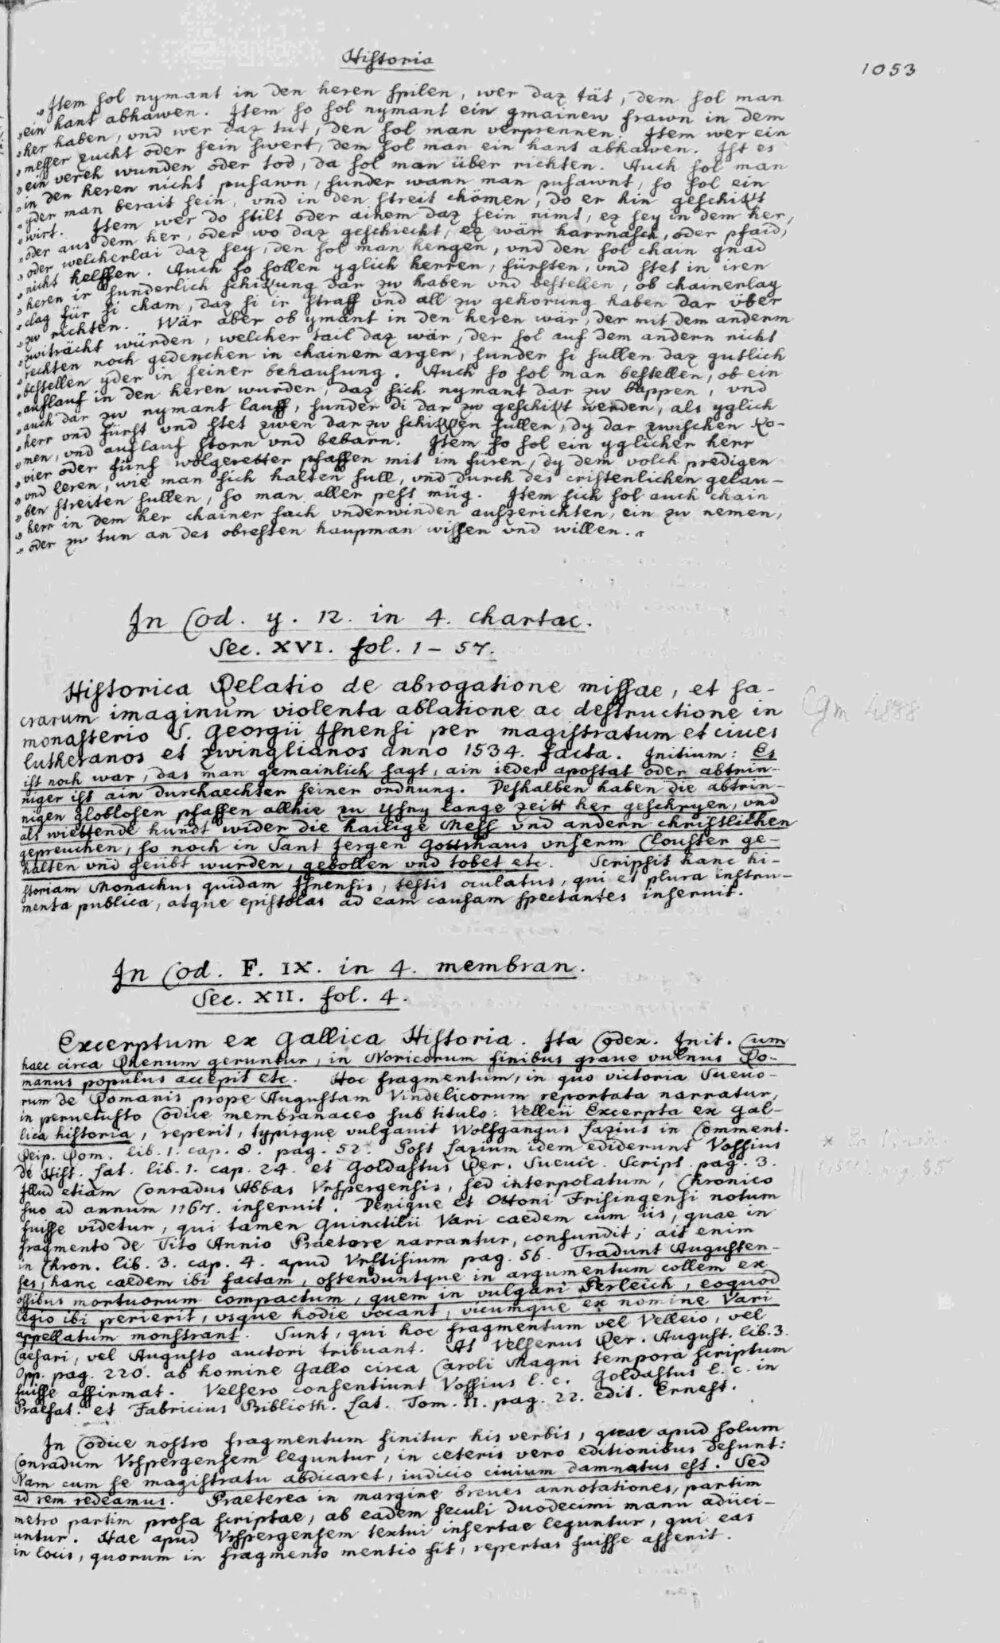 Historia
1053
„Item sol nymant in den heren spilen, wer daz tät, dem sol man
„ein hant abhawen. Item so sol nymant ein gmainew frawn in dem
„her haben, vnd wer daz tut, den sol man verprennen. Item wer ein
„messer zucht oder sein swert, dem sol man ein hant abhawen. Ist es
„ein verch wunden oder tod, da sol man über richten. Auch sol man
„in den heren nicht pusawn, sunder wann man pusawnt, so sol ein
„yder man berait sein, vnd in den streit chömen, do er hin geschikt
„wirt. Item wer do stilt oder aihem daz sein nimt, ez sey in dem her,
„oder aus dem her, oder wo daz geschiecht, ez wär harrnasch, oder pfaid,
„oder welcherlai daz sey, den sol man hengen, vnd den sol chain gnad
„nicht helffen. Auch so sollen yglich herren, fürsten, vnd stet in iren
„heren ir sunderlich schikung dar zw haben vnd bestellen, ob chainerlay
„clag für si cham, daz si ir straff vnd all zw gehorung haben dar über
„zw richten. Wär aber ob ymant in den heren wär, der mit dem anderm
„zwiträcht würden, welcher tail daz wär, der sol auf dem andern nicht
„rechten noch gedenchen in chainem argen, sunder si sullen daz gutlich
„bestellen yder in seiner behausung. Auch so sol man bestellen, ob ein
„auflauf in den heren wurden, daz sich nymant dar zw wappen, vnd
„auch dar zw nymant lauff, sunder di dar zw geschikt werden, als yglich
„herr vnd fürst vnd stet zwen dar zw schikken sullen, dy dar zwischen ko-
„men, vnd auflauf storn vnd bebarn. Item so sol ein yglicher herr
„vier oder fünf wolgeretter pfaffen mit im füren, dy dem volch predigen
„vnd leren, wie man sich halten sull, vnd durch des cristenlichen gelau-
„ben streiten sullen, so man aller pest mug. Item sich sol auch chain
„herr in dem her chainer sach vnderwinden auszerichten, ein zw nemen,
„oder zw tun an des obresten haupman wissen vnd willen.“
In Cod. y. 12. in 4. chartac.
Sec. XVI. fol. 1 – 57.
Historica Relatio de abrogatione missae, et sa-
crarum imaginum violenta ablatione ac destructione in
monasterio S. Georgii Isnensi per magistratum et cives
lutheranos et zwinglianos anno 1534. facta. Initium: Es
ist noch war, das man gemainlich sagt, ain ieder apostat oder abtrin-
niger ist ain durchaechter seiner ordnung. Deshalben haben die abtrin-
nigen globlosen pfaffen allhie zu Yssny lange zeitt her geschryen, vnd
als wiettende hundt wider die hailige Mess vnd andern christlichen
gepreuchen, so noch in Sant Jergen Gottshaus vnserm Closter ge-
halten vnd geübt wurden, gebollen vnd tobet etc. Scripsit hanc hi-
storiam Monachus quidam Isnensis, testis oculatus, qui et plura instru-
menta publica, atque epistolas ad eam causam spectantes inseruit.
Cgm 4888
In Cod. F. IX. in 4. membran.
Sec. XII. fol. 4.
Excerptum ex Gallica Historia. Ita Codex. Init. Cum
haec circa Rhenum geruntur, in Noricorum finibus graue vulnus Ro-
manus populus accepit etc. Hoc fragmentum, in quo victoria Sueuo-
rum de Romanis prope Augustam Vindelicorum reportata narratur,
in peruetusto Codice membranaceo sub titulo: Velleii Excerpta ex Gal-
lica historia, reperit, typisque vulgauit Wolfgangus Lazius in Comment.
Reip. Rom. lib. 1. cap. 8. pag. 52. Post Lazium idem ediderunt Vossius
de Hist. Lat. lib. 1. cap. 24. et Goldastus Rer. Sueuic. Script. pag. 3.
Illud etiam Conradus Abbas Vrspergensis, sed interpolatum, Chronico
suo ad annum 1167. inseruit. Denique et Ottoni Frisingensi notum
fuisse videtur, qui tamen Quinctilii Vari caedem cum iis, quae in
fragmento de Tito Annio Praetore narrantur, confundit; ait enim
in Chron. lib. 3. cap. 4. apud Vrstisium pag. 56. Tradunt Augusten-
ses, hanc caedem ibi factam, ostenduntque in argumentum collem ex
ossibus mortuorum compactum, quem in vulgari Perleich, eoquod
legio ibi perierit, vsque hodie vocant, vicumque ex nomine Vari
appellatum monstrant. Sunt, qui hoc fragmentum vel Velleio, vel
Caesari, vel Augusto auctori tribuant. At Velserus Rer. August. lib. 3.
Opp. pag. 220. ab homine Gallo circa Caroli Magni tempora scriptum
fuisse affirmat. Velsero consentiunt Vossius l. c. Goldastus l. c. in
Praefat. et Fabricius Biblioth. Lat. Tom. II. pag. 22. edit. Ernest.
In Codice nostro fragmentum finitur his verbis, quae apud solum
Conradum Vrspergensem leguntur, in ceteris vero editionibus desunt:
Nam cum se magistratu abdicaret, iudicio ciuium damnatus est. Sed
ad rem redeamus. Praeterea in margine breues annotationes, partim
metro partim prosa scriptae, ab eadem seculi duodecimi manu adiici-
untur. Hae apud Vrspergensem textui insertae leguntur, qui eas
in locis, quorum in fragmento mentio fit, repertas fuisse asserit.